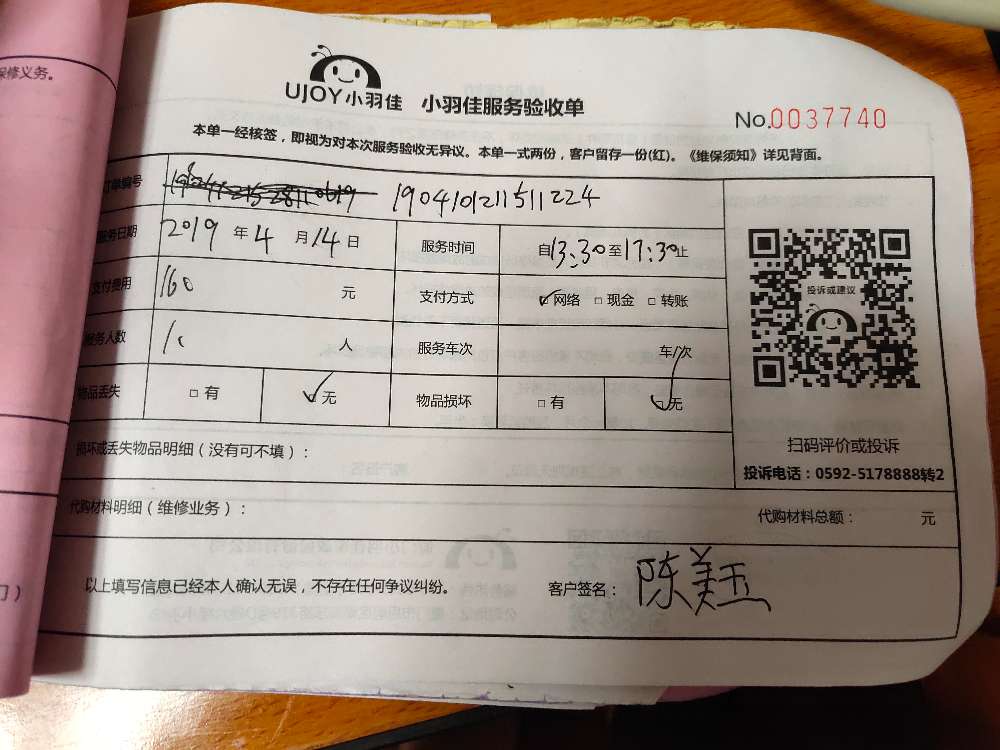 保修义务。
UJOY小羽佳 小羽佳服务验收单
No.0037740
本单一经核签，即视为对本次服务验收无异议。本单一式两份，客户留存一份(红)。《维保须知》详见背面。
订单编号 190410121511224
服务日期 2019 年 4 月 14 日 服务时间 自13:30至17:30止
投诉或建议
支付费用 160 元 支付方式 ☑网络 □现金 □转账
服务人数 人 服务车次 车/次
物品丢失 □有 ☑无 物品损坏 □有 ☑无
扫码评价或投诉
投诉电话：0592-5178888转2
损坏或丢失物品明细（没有可不填）：
代购材料明细（维修业务）： 代购材料总额： 元
以上填写信息已经本人确认无误，不存在任何争议纠纷。 客户签名：陈美玉